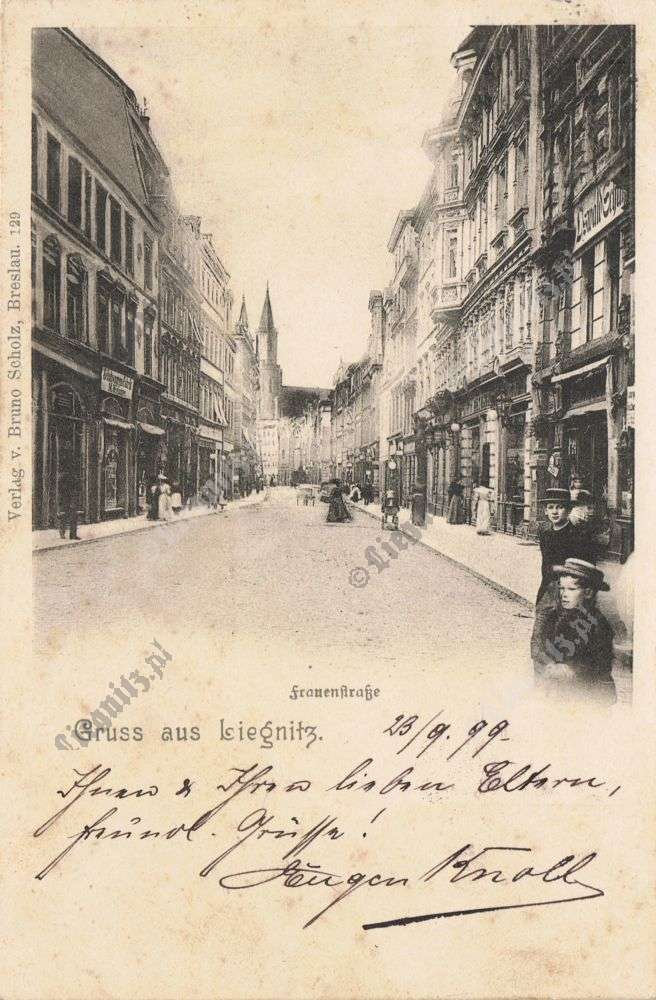 Verlag v. Bruno Scholz, Breslau. 129
Frauenstraße
Gruss aus Liegnitz.
23/9. 99.
Ihnen & Ihren lieben Eltern,
freundl. Grüsse!
Eugen Knoll
© Liegnitz.pl
Liegnitz.pl